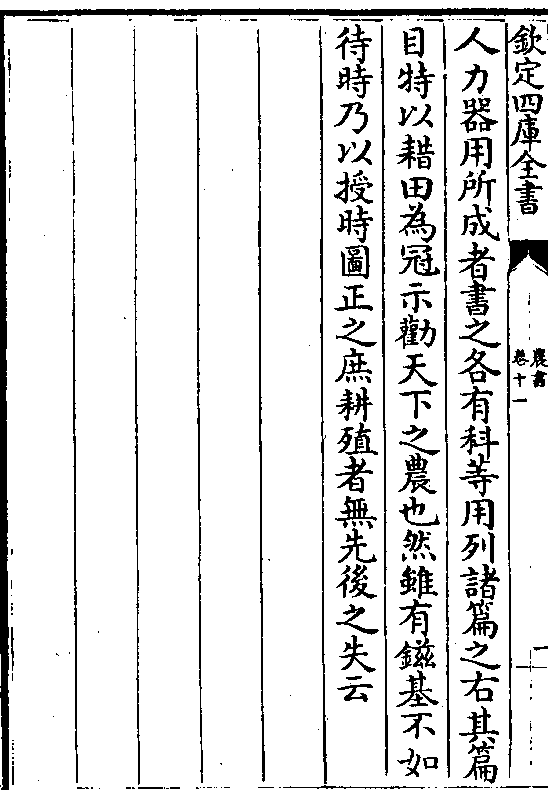 欽定四庫全書
農書
卷十一
一
人力器用所成者書之各有科等用列諸篇之右其篇
目特以耤田為冠示勸天下之農也然雖有鎡基不如
待時乃以授時圖正之庶耕殖者無先後之失云